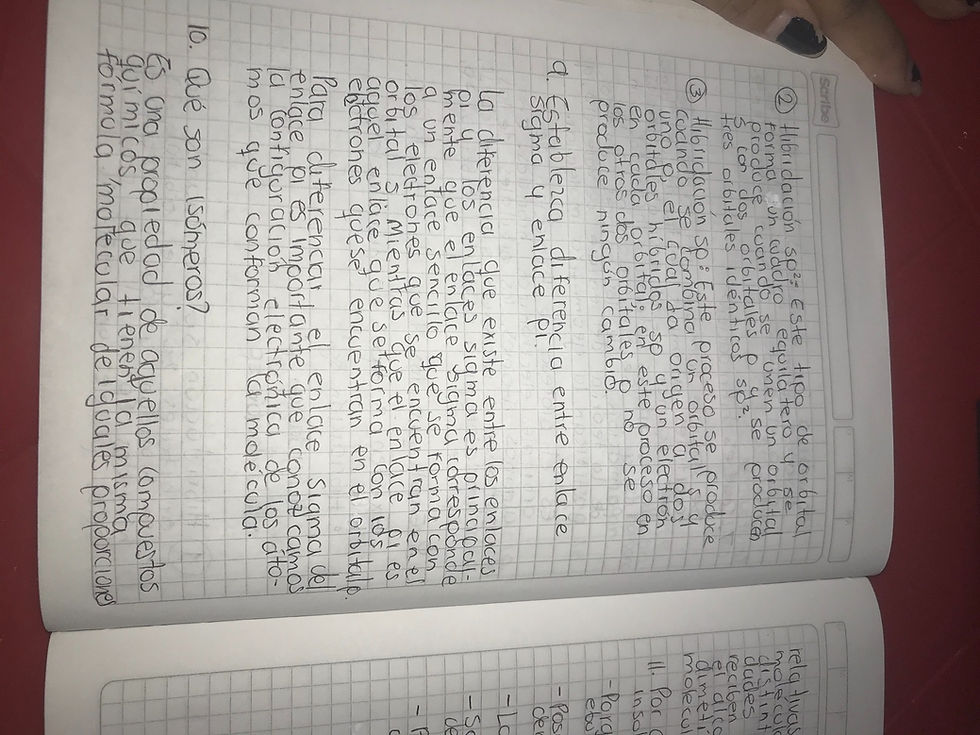 scribe
② Hibridación sp²: Este tipo de orbital
forma un cuadro equilatero y se
produce cuando se unen un orbital
S con dos orbitales p y se producen
tres orbitales identicos sp².
③ Hibridación sp: Este proceso se produce
cuando se combina un orbital s y
uno p, el cual da origen a dos
orbitales híbridos sp y un electrón
en cada orbital; en este proceso en
los otros dos orbitales p no se
produce ningún cambio.
9. Establezca diferencia entre enlace
sigma y enlace pi.
La diferencia que existe entre los enlaces
pi y los enlaces sigma es principal-
mente que el enlace sigma corresponde
a un enlace sencillo que se forma con
los eletrones que se encuentran en el
orbital s Mientras que el enlace pi es
aquel enlace que se forma con los
electrones que se encuentran en el orbital p.
Para diferenciar el enlace sigma del
enlace pi es importante que conozcamos
la configuración electrónica de los áto-
mos que conforman la molécula.
10. Qué son isómeros?
Es una propiedad de aquellos compuestos
químicos que tienen la misma
formula molecular de iguales proporciones
relativas
molécul
distint
dades
reciben
el alco
dimeti
molecul
11. Por q
insol
- Porq
- Pos
- La
- So
de
- P